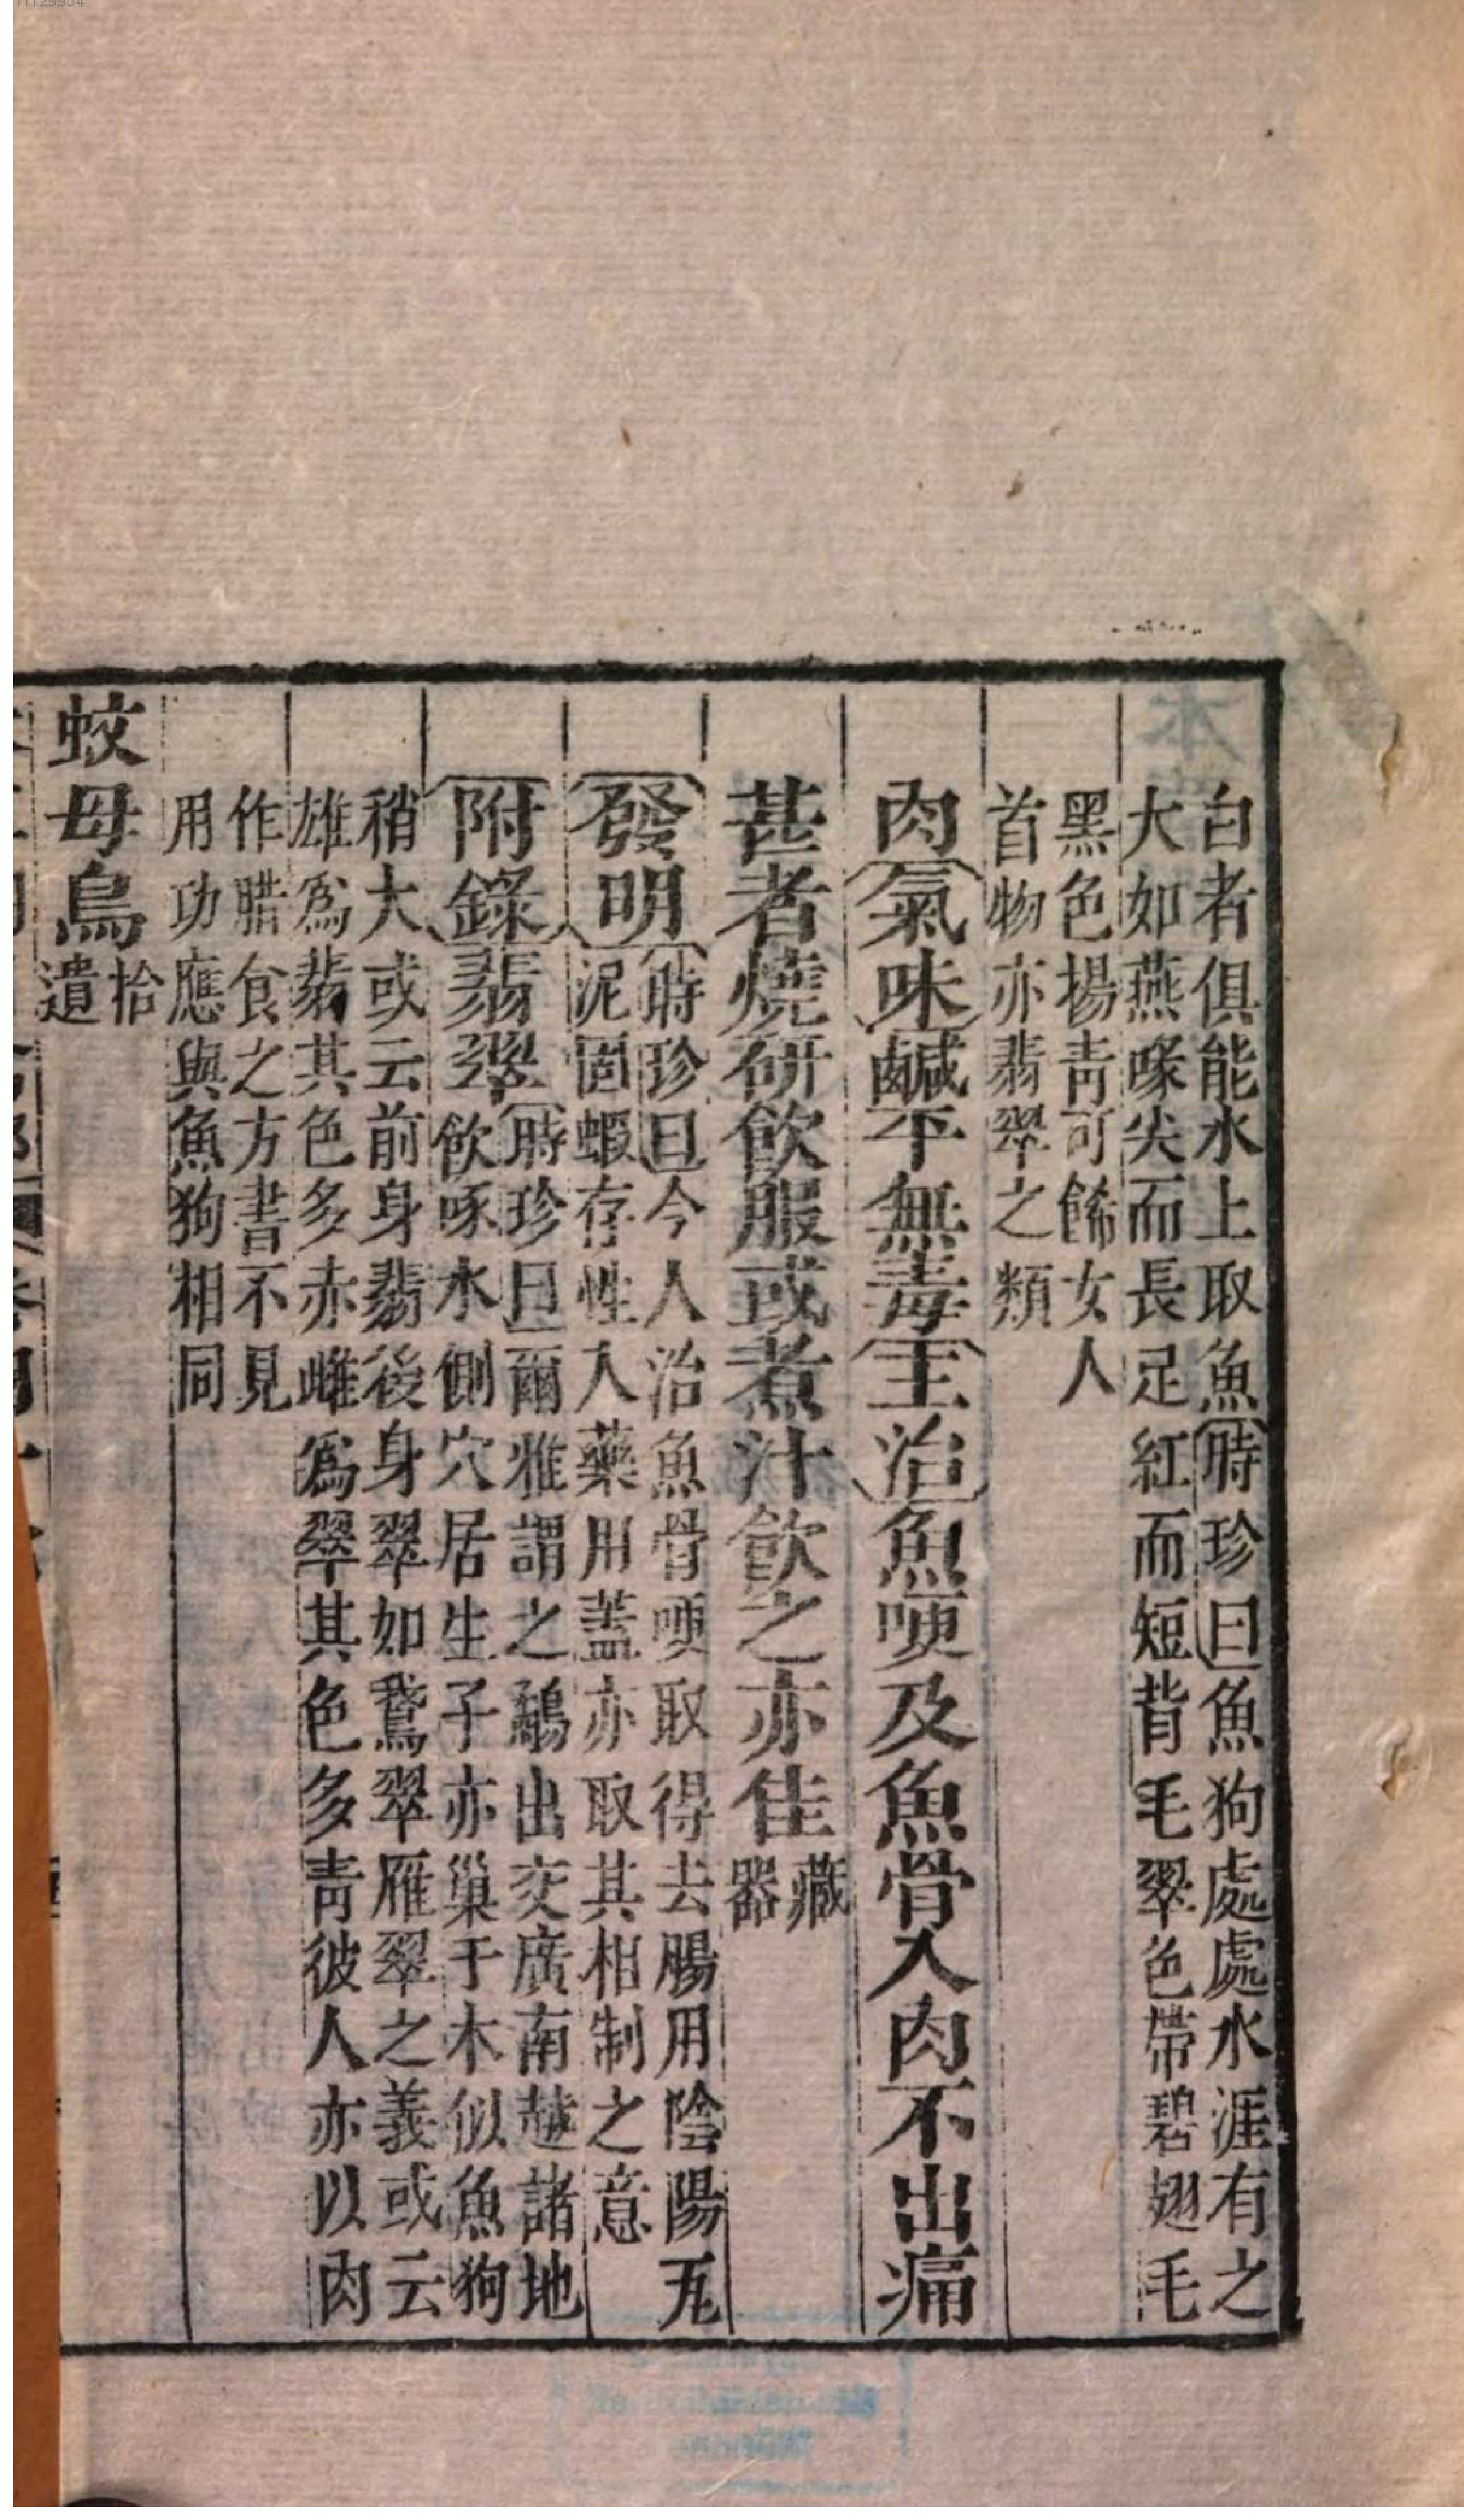 白者俱能水上取魚時珍曰魚狗處處水涯有之
大如燕喙尖而長足紅而短背毛翠色帶碧翅毛
黑色揚青可餙女人
首物亦翡翠之類
肉氣味鹹平無毒主治魚哽及魚骨入肉不出痛
甚者燒研飲服或煮汁飲之亦佳藏
器
發明時珍曰今人治魚骨哽取得去腸用陰陽瓦
泥固煆存性入藥用蓋亦取其相制之意
附錄翡翠時珍曰爾雅謂之鷸出交廣南越諸地
飲啄水側穴居生子亦巢于木似魚狗
稍大或云前身翡後身翠如鵞翠雁翠之義或云
雄爲翡其色多赤雌爲翠其色多青彼人亦以肉
作腊食之方書不見
用功應與魚狗相同
蚊母鳥拾
遺